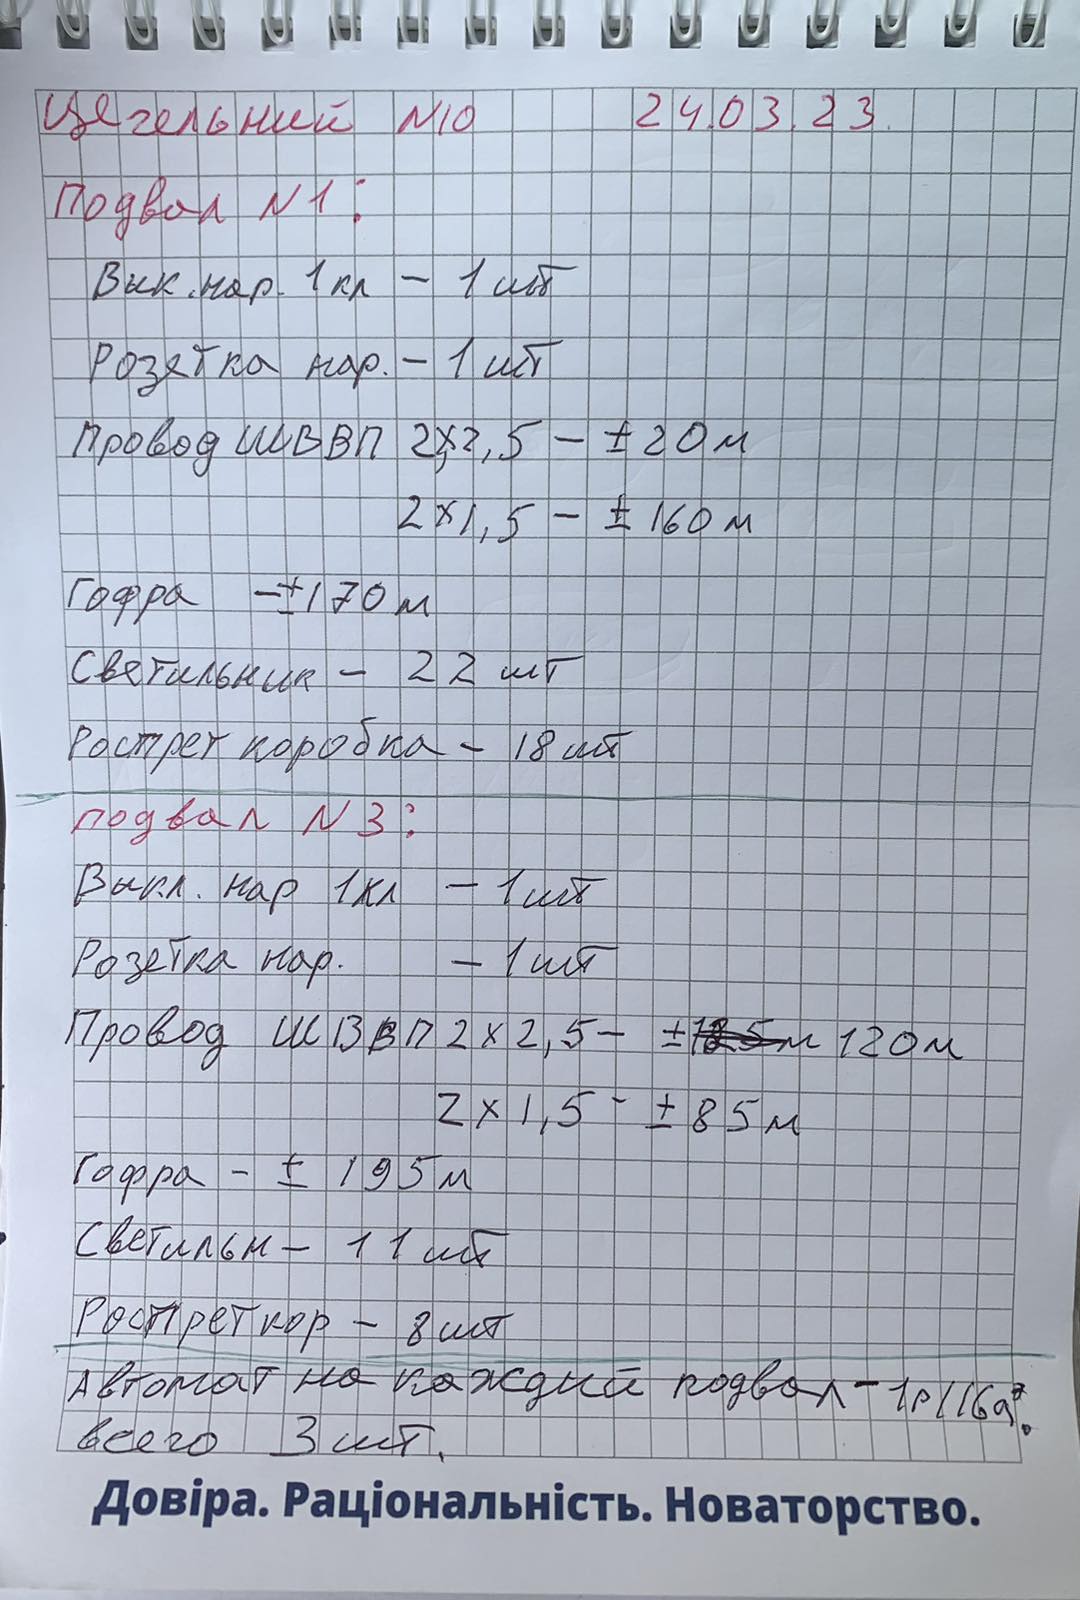 Цегельний N10 24.03.23.
Подвал N1:
Вык. нар. 1кл - 1шт
Розетка нар. - 1шт
Провод ШВВП 2х2,5 - ±20м
2х1,5 - ±160м
Гофра - ±170м
Светильник - 22шт
Рострет коробка - 18шт
подвал N3:
Выкл. нар 1кл - 1шт
Розетка нар. - 1шт
Провод ШВВП 2х2,5 - ± 120м
2х1,5 - ±85м
Гофра - ± 195м
Светильн - 11шт
Рострет кор - 8шт
Автомат на каждий подвал - 1р/16а.
всего 3шт.
Довіра. Раціональність. Новаторство.